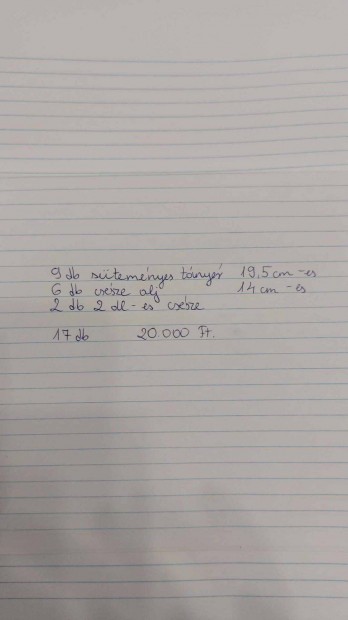 9 db süteményes tányér 19,5 cm-es
6 db csésze alj 14 cm-es
2 db 2 dl-es csésze
17 db 20.000 Ft.